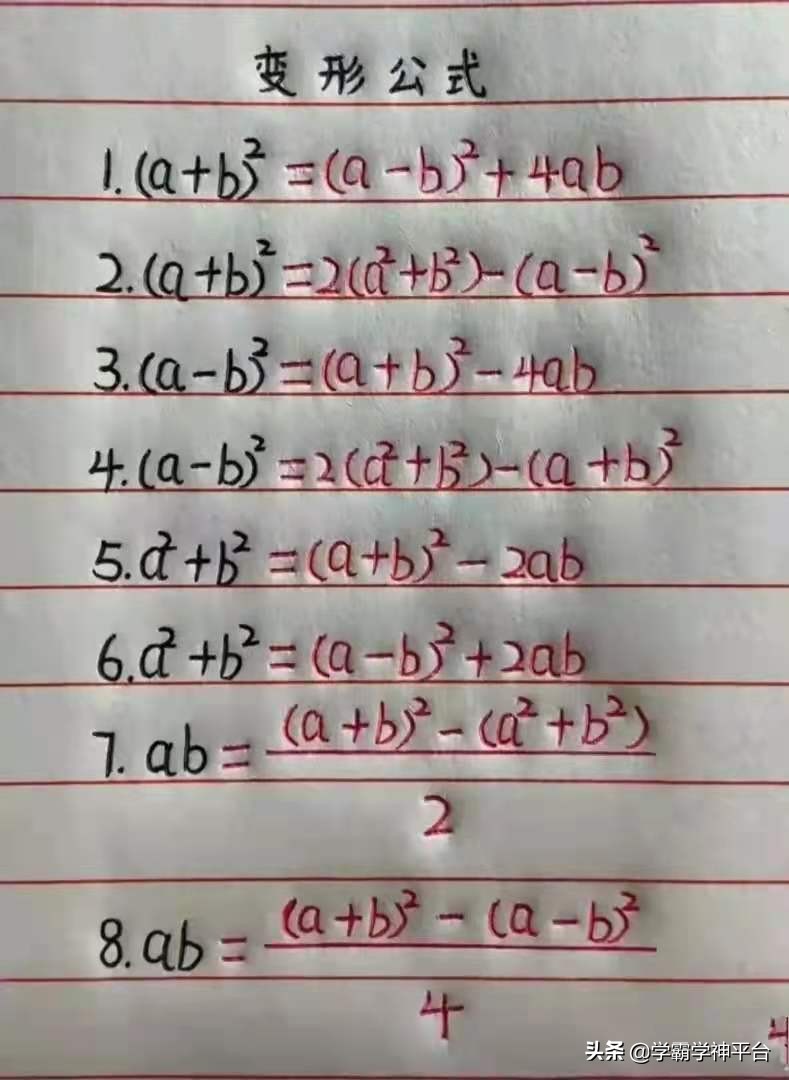 变形公式
1. (a+b)² = (a-b)² + 4ab
2. (a+b)² = 2(a²+b²) - (a-b)²
3. (a-b)² = (a+b)² - 4ab
4. (a-b)² = 2(a²+b²) - (a+b)²
5. a²+b² = (a+b)² - 2ab
6. a²+b² = (a-b)² + 2ab
7. ab = ((a+b)² - (a²+b²))/2
8. ab = ((a+b)² - (a-b)²)/4
头条 @学霸学神平台